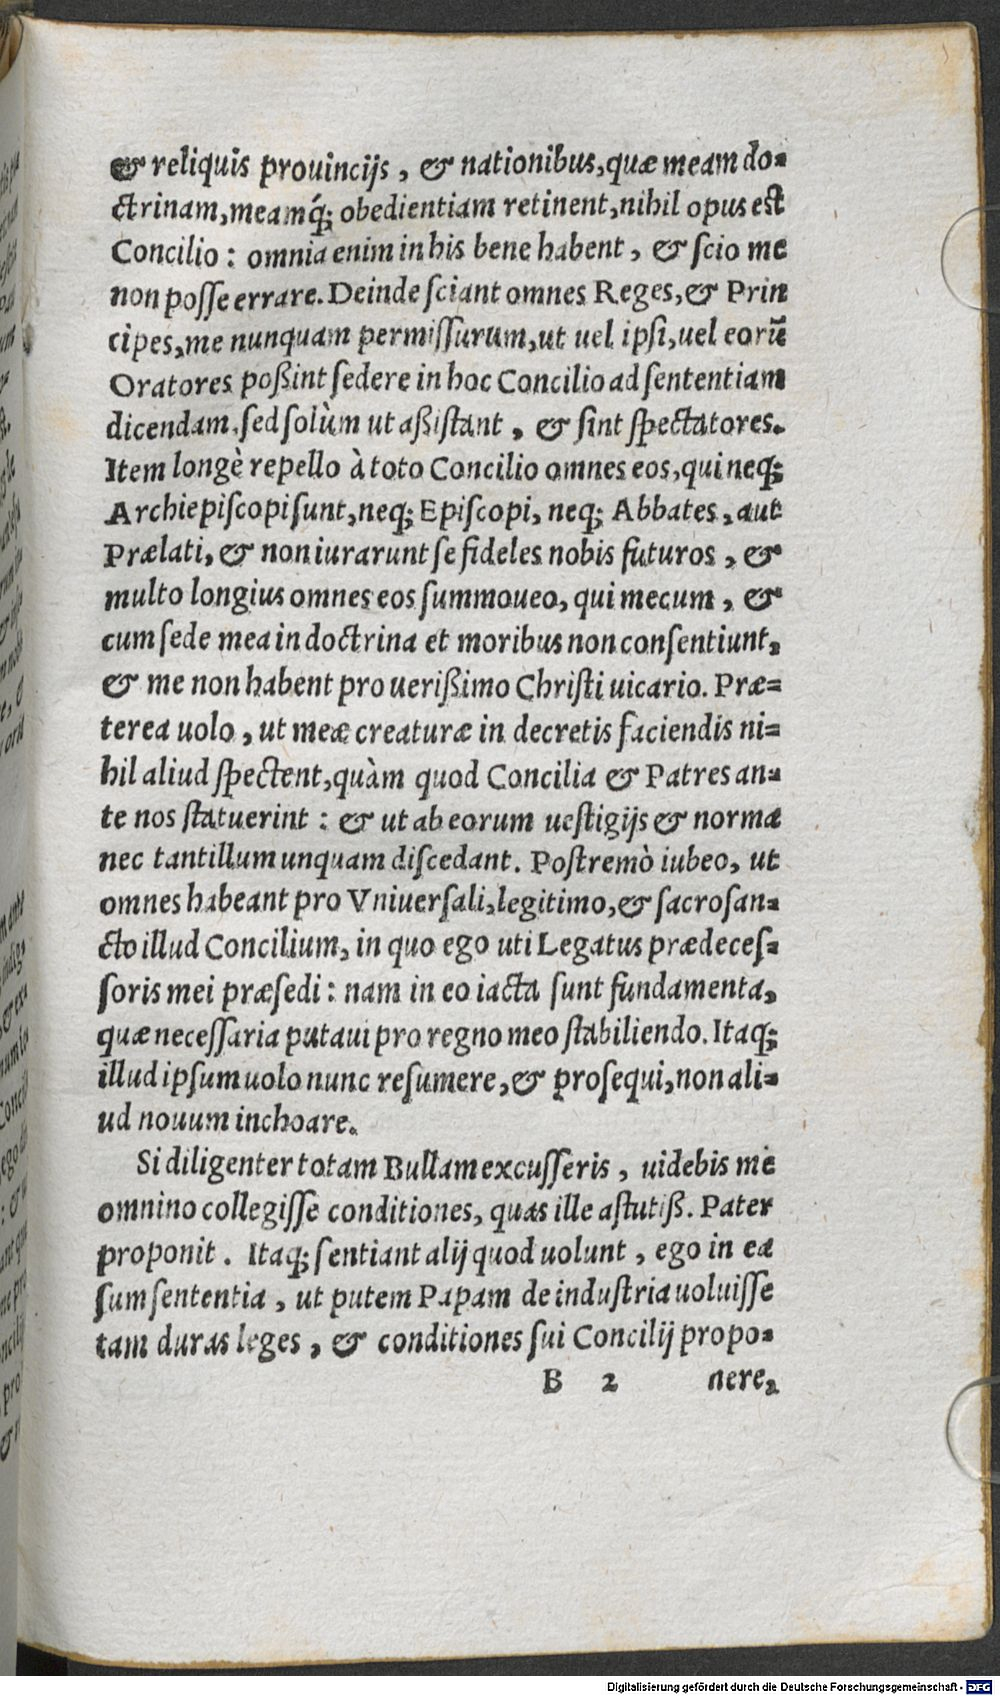 & reliquis prouincijs, & nationibus, quæ meam do-
ctrinam, meamq́; obedientiam retinent, nihil opus est
Concilio: omnia enim in his bene habent, & scio me
non posse errare. Deinde sciant omnes Reges, & Prin
cipes, me nunquam permissurum, ut uel ipsi, uel eorũ
Oratores poßint sedere in hoc Concilio ad sententiam
dicendam, sed solùm ut aßistant, & sint spectatores.
Item longè repello à toto Concilio omnes eos, qui neq;
Archiepiscopi sunt, neq; Episcopi, neq; Abbates, aut
Prælati, & non iurarunt se fideles nobis futuros, &
multo longius omnes eos summoueo, qui mecum, &
cum sede mea in doctrina et moribus non consentiunt,
& me non habent pro uerißimo Christi uicario. Præ-
terea uolo, ut meæ creaturæ in decretis faciendis ni-
hil aliud spectent, quàm quod Concilia & Patres an-
te nos statuerint: & ut ab eorum uestigijs & norma
nec tantillum unquam discedant. Postremò iubeo, ut
omnes habeant pro Vniuersali, legitimo, & sacrosan-
cto illud Concilium, in quo ego uti Legatus prædeces-
soris mei præsedi: nam in eo iacta sunt fundamenta,
quæ necessaria putaui pro regno meo stabiliendo. Itaq;
illud ipsum uolo nunc resumere, & prosequi, non ali-
ud nouum inchoare.
Si diligenter totam Bullam excusseris, uidebis me
omnino collegisse conditiones, quas ille astutiß. Pater
proponit. Itaq; sentiant alij quod uolunt, ego in ea
sum sententia, ut putem Papam de industria uoluisse
tam duras leges, & conditiones sui Concilij propo-
B 2 nere,
Digitalisierung gefördert durch die Deutsche Forschungsgemeinschaft - DFG